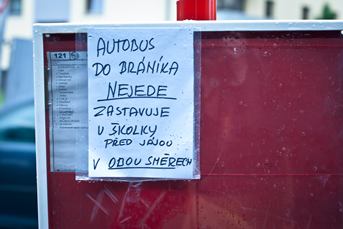 121
AUTOBUS
DO BRÁNÍKA
NEJEDE
ZASTAVUJE
U ŠKOLKY
PŘED JAJOU
V OBOU SMĚRECH